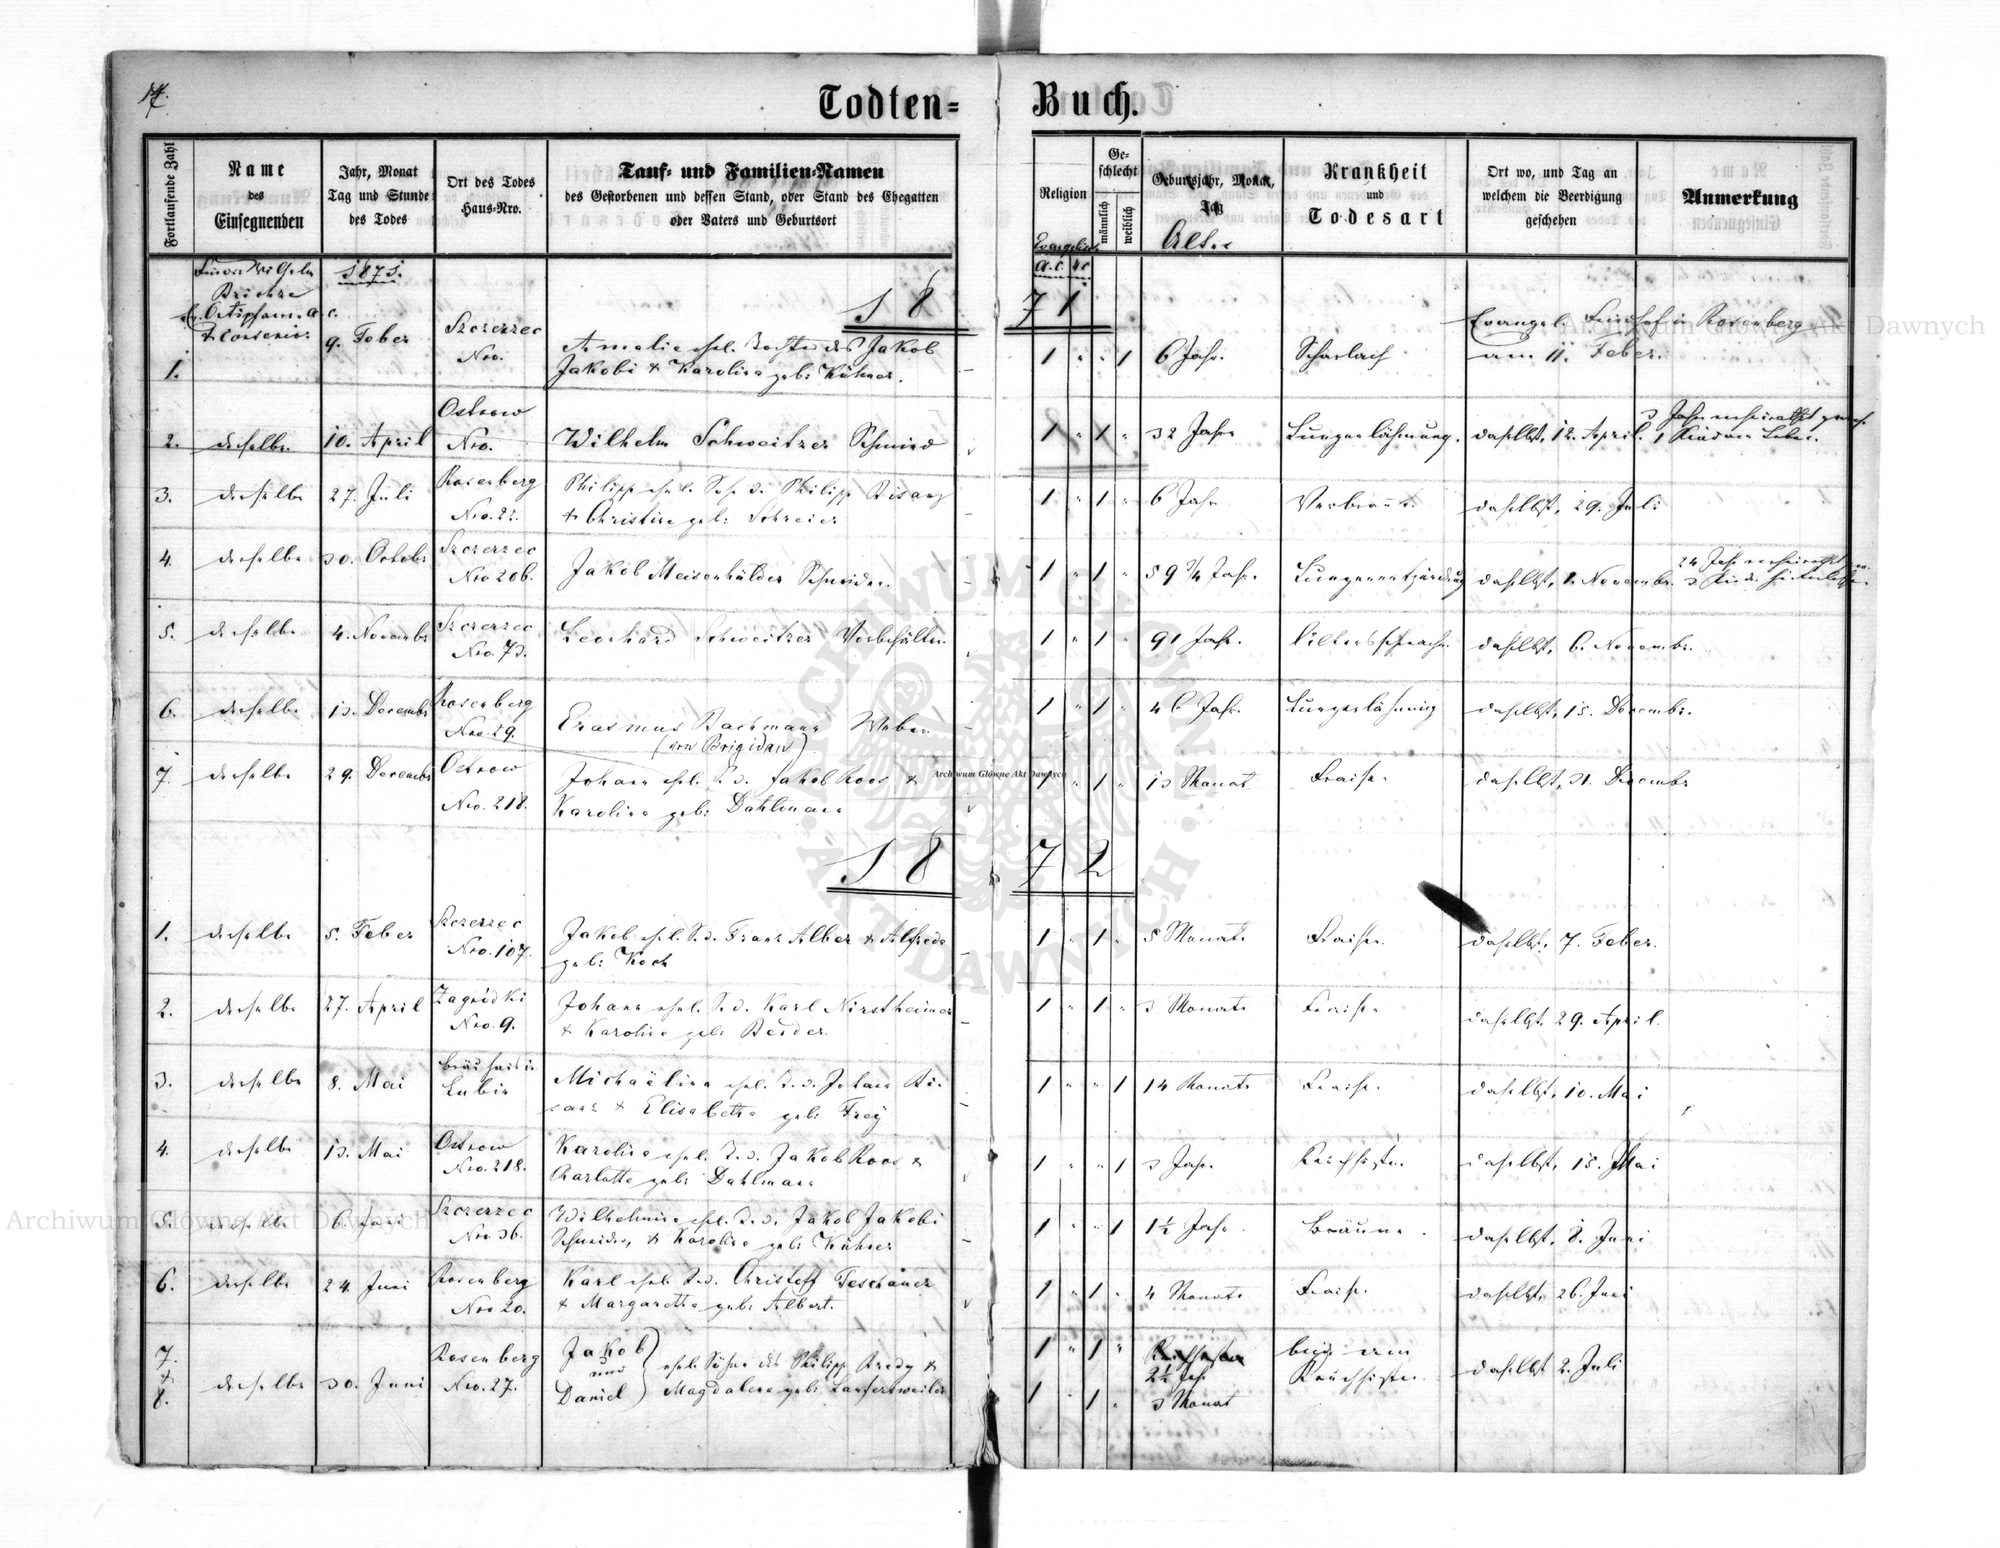 Todten= Buch.
Fortlaufende Zahl
Name
des
Einsegnenden
Jahr, Monat
Tag und Stunde
des Todes
Ort des Todes
Haus-Nro.
Tauf- und Familien-Namen
des Gestorbenen und dessen Stand, oder Stand des Ehegatten
oder Vaters und Geburtsort
Religion
Ge-
schlecht
männlich
weiblich
Geburtsjahr, Monat,
Tag
Alter
Krankheit
und
Todesart
Ort wo, und Tag an
welchem die Beerdigung
geschehen
Anmerkung
1871.
18 71
1. 9. Feber Szczerzec Nro. Amalie ehel. Tochter des Jakob
Jakobi & Karolina geb: Kühner.
1 " " 1 6 Jahr. Scharlach Evangel. Friedhof in Rosenberg
am 11. Feber.
2. derselbe 10. April Ostrow Nro. Wilhelm Schweitzer Schmied
1 " 1 " 32 Jahr Lungenlähmung. daselbst, 12. April.
3. derselbe 27. Juli Rosenberg Nro. 22. Philipp ehel. S. d. Philipp Bisanz
& Christine geb: Schreier
1 " 1 " 6 Jahr Verbrannt. daselbst, 29. Juli
4. derselbe 30. October Szczerzec Nro 206. Jakob Meisenhälder Schneider.
1 " 1 " 59 3/4 Jahr. Lungenentzündung daselbst, 1. Novembr.
5. derselbe 4. Novembr Szczerzec Nro. 73. Leonhard Schweitzer
1 " 1 " 91 Jahr. Altersschwäche. daselbst, 6. Novembr.
6. derselbe 13. Decembr Rosenberg Nro 29. Erasmus Bachmann Weber
(von Brigidau)
1 " 1 " 46 Jahr. Lungenlähmung daselbst, 15. Decembr.
7. derselbe 29. Decembr Ostrow Nro. 218. Johann ehel. S. d. Jakob Roos &
Karolina geb: Dahlmann
1 " 1 " 13 Monat Fraise. daselbst, 31. Decembr
18 72
1. derselbe 5. Feber Szczerzec Nro. 107. Jakob ehel. S. d. Franz Alber & Alfreda
geb: Koch
1 " 1 " 5 Monate Fraise. daselbst, 7. Feber.
2. derselbe 27. April Zagródki Nro. 9. Johann ehel. S. d. Karl Nirstheimer
& Karolina geb: Beider.
1 " 1 " 3 Monate Fraise daselbst, 29. April.
3. derselbe 8. Mai Lubin Michaëlina ehel. T. d. Johann Bi-
sanz & Elisabetha geb: Frey
1 " " 1 14 Monate Fraise. daselbst, 10. Mai
4. derselbe 13. Mai Ostrow Nro. 218. Karolina ehel. T. d. Jakob Roos &
Charlotte geb: Dahlmann
1 " " 1 3 Jahr. Keuchhusten. daselbst, 15. Mai
5. derselbe 6. Juni Szczerzec Nro 36. Wilhelmine ehel. T. d. Jakob Jakobi
Schneider, & Karolina geb: Kühner
1 " " 1 1½ Jahr. Bräune. daselbst, 8. Juni
6. derselbe 24. Juni Rosenberg Nro 20. Karl ehel. S. d. Christoff Teschauer
& Margaretha geb: Albert.
1 " 1 " 4 Monate Fraise. daselbst, 26. Juni
7. & 8. derselbe 30. Juni Rosenberg Nro. 27. Jakob
und
Daniel
ehel. Söhne des Philipp Bredy &
Magdalena geb: Laufersweiler
1 " 1 " 2½ Jahr beide am
Keuchhusten. daselbst 2. Juli
1 " 1 " 3 Monat
Archiwum Główne Akt Dawnych
Archiwum Główne Akt Dawnych
Archiwum Główne Akt Dawnych
ARCHIWUM GŁÓWNE · AKT DAWNYCH ·